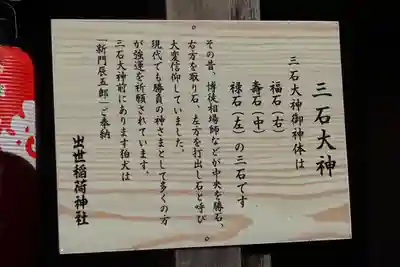 三石大神
三石大神御神体は
福石（右）
壽石（中）
禄石（左）の三石です
。
その昔、博徒相場師などが中央を勝石、
右方を取り石、左方を打出し石と呼び
大変信仰していました。
現代でも勝負の神さまとして多くの方
が強運を祈願されています。
三石大神前にあります狛犬は
「新門辰五郎」ご奉納
。
出世稲荷神社